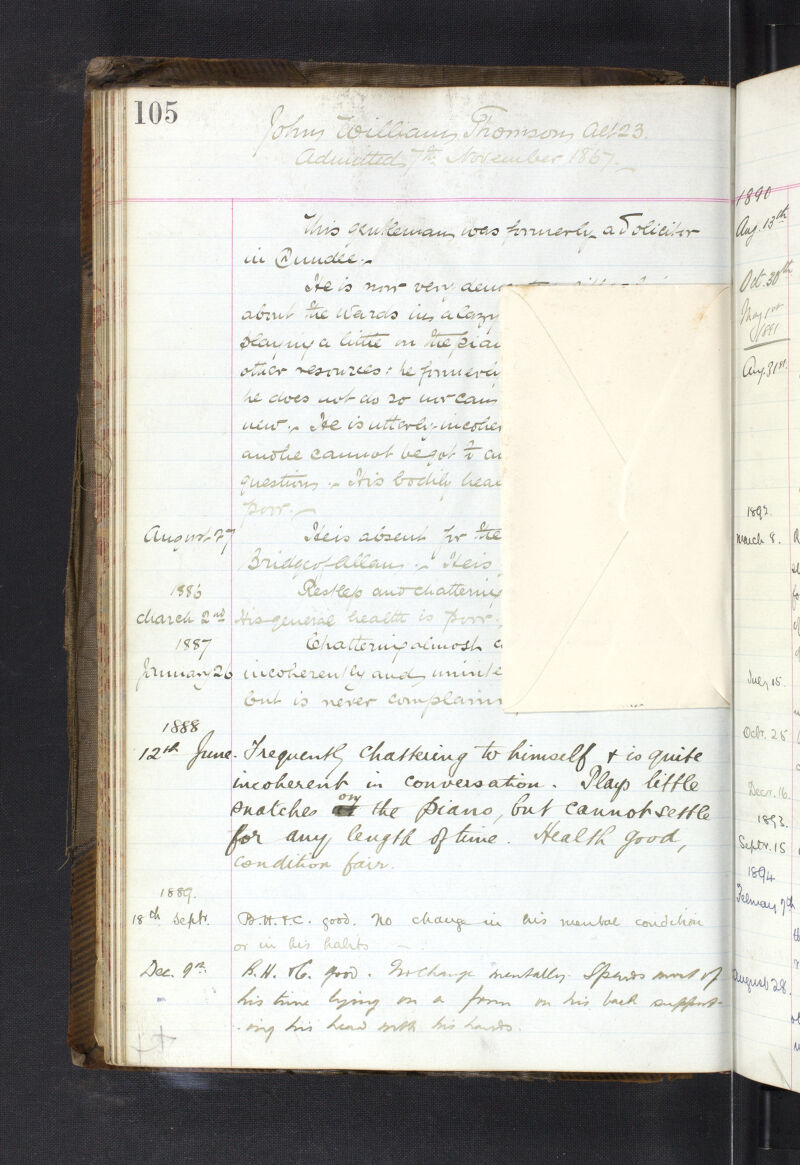 105
John William Thomson, aet 23.
Admitted 7th November 1867.
This gentleman was formerly a Solicitor
in Dundee.
He is now very
about the wards in a lazy
playing a little on the
other resources: he formerly
he does not do so nor can
new. He is utterly
and he cannot be got to
questions. His bodily
poor.
August 27 He is absent for the
Bridge of Allan. He is
1886 Restless and chattering
March 2nd His general health is poor.
1887 Chattering almost
January 26 incoherently and
but is never
1888
12th June. Frequently chattering to himself & is quite
incoherent in conversation. Plays little
snatches on the piano, but cannot settle
for any length of time. Health good,
condition fair.
1889.
18th Sept. B.H. & C. good. No change in his mental condition
or in his habits
Dec. 9th. B.H. & C. good. No change mentally. Spends most of
his time lying on a form on his back support-
-ing his head with his hands.
1890
Aug. 13th
Oct. 30th
May 1st
1891
Aug. 31st.
1892.
March 8.
July 15.
Octr. 25
Decr. 16.
1893.
Septr. 15
1894
February 7th
August 28.